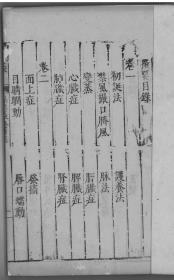 保嬰目錄
卷一
初誕法　護養法
噤風撮口臍風　脉法
變蒸　肝臟症
心臟症　脾臟症
肺臟症　腎臟症
卷二
面上症　發搐
目睛瞤動　唇口蠕動